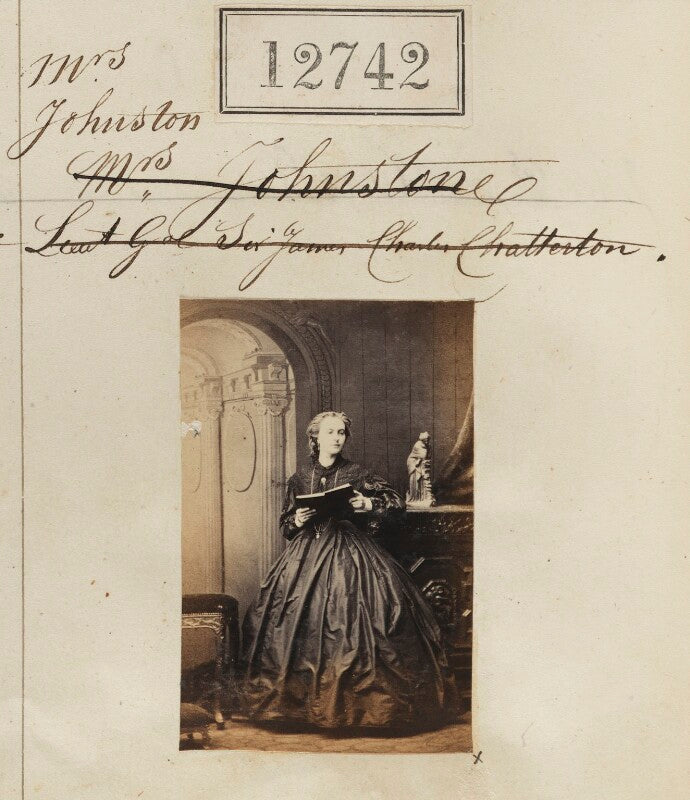 12742
Mrs
Johnston
Mrs Johnstone
Lieut Gnl Sir James Charles Chatterton.
x